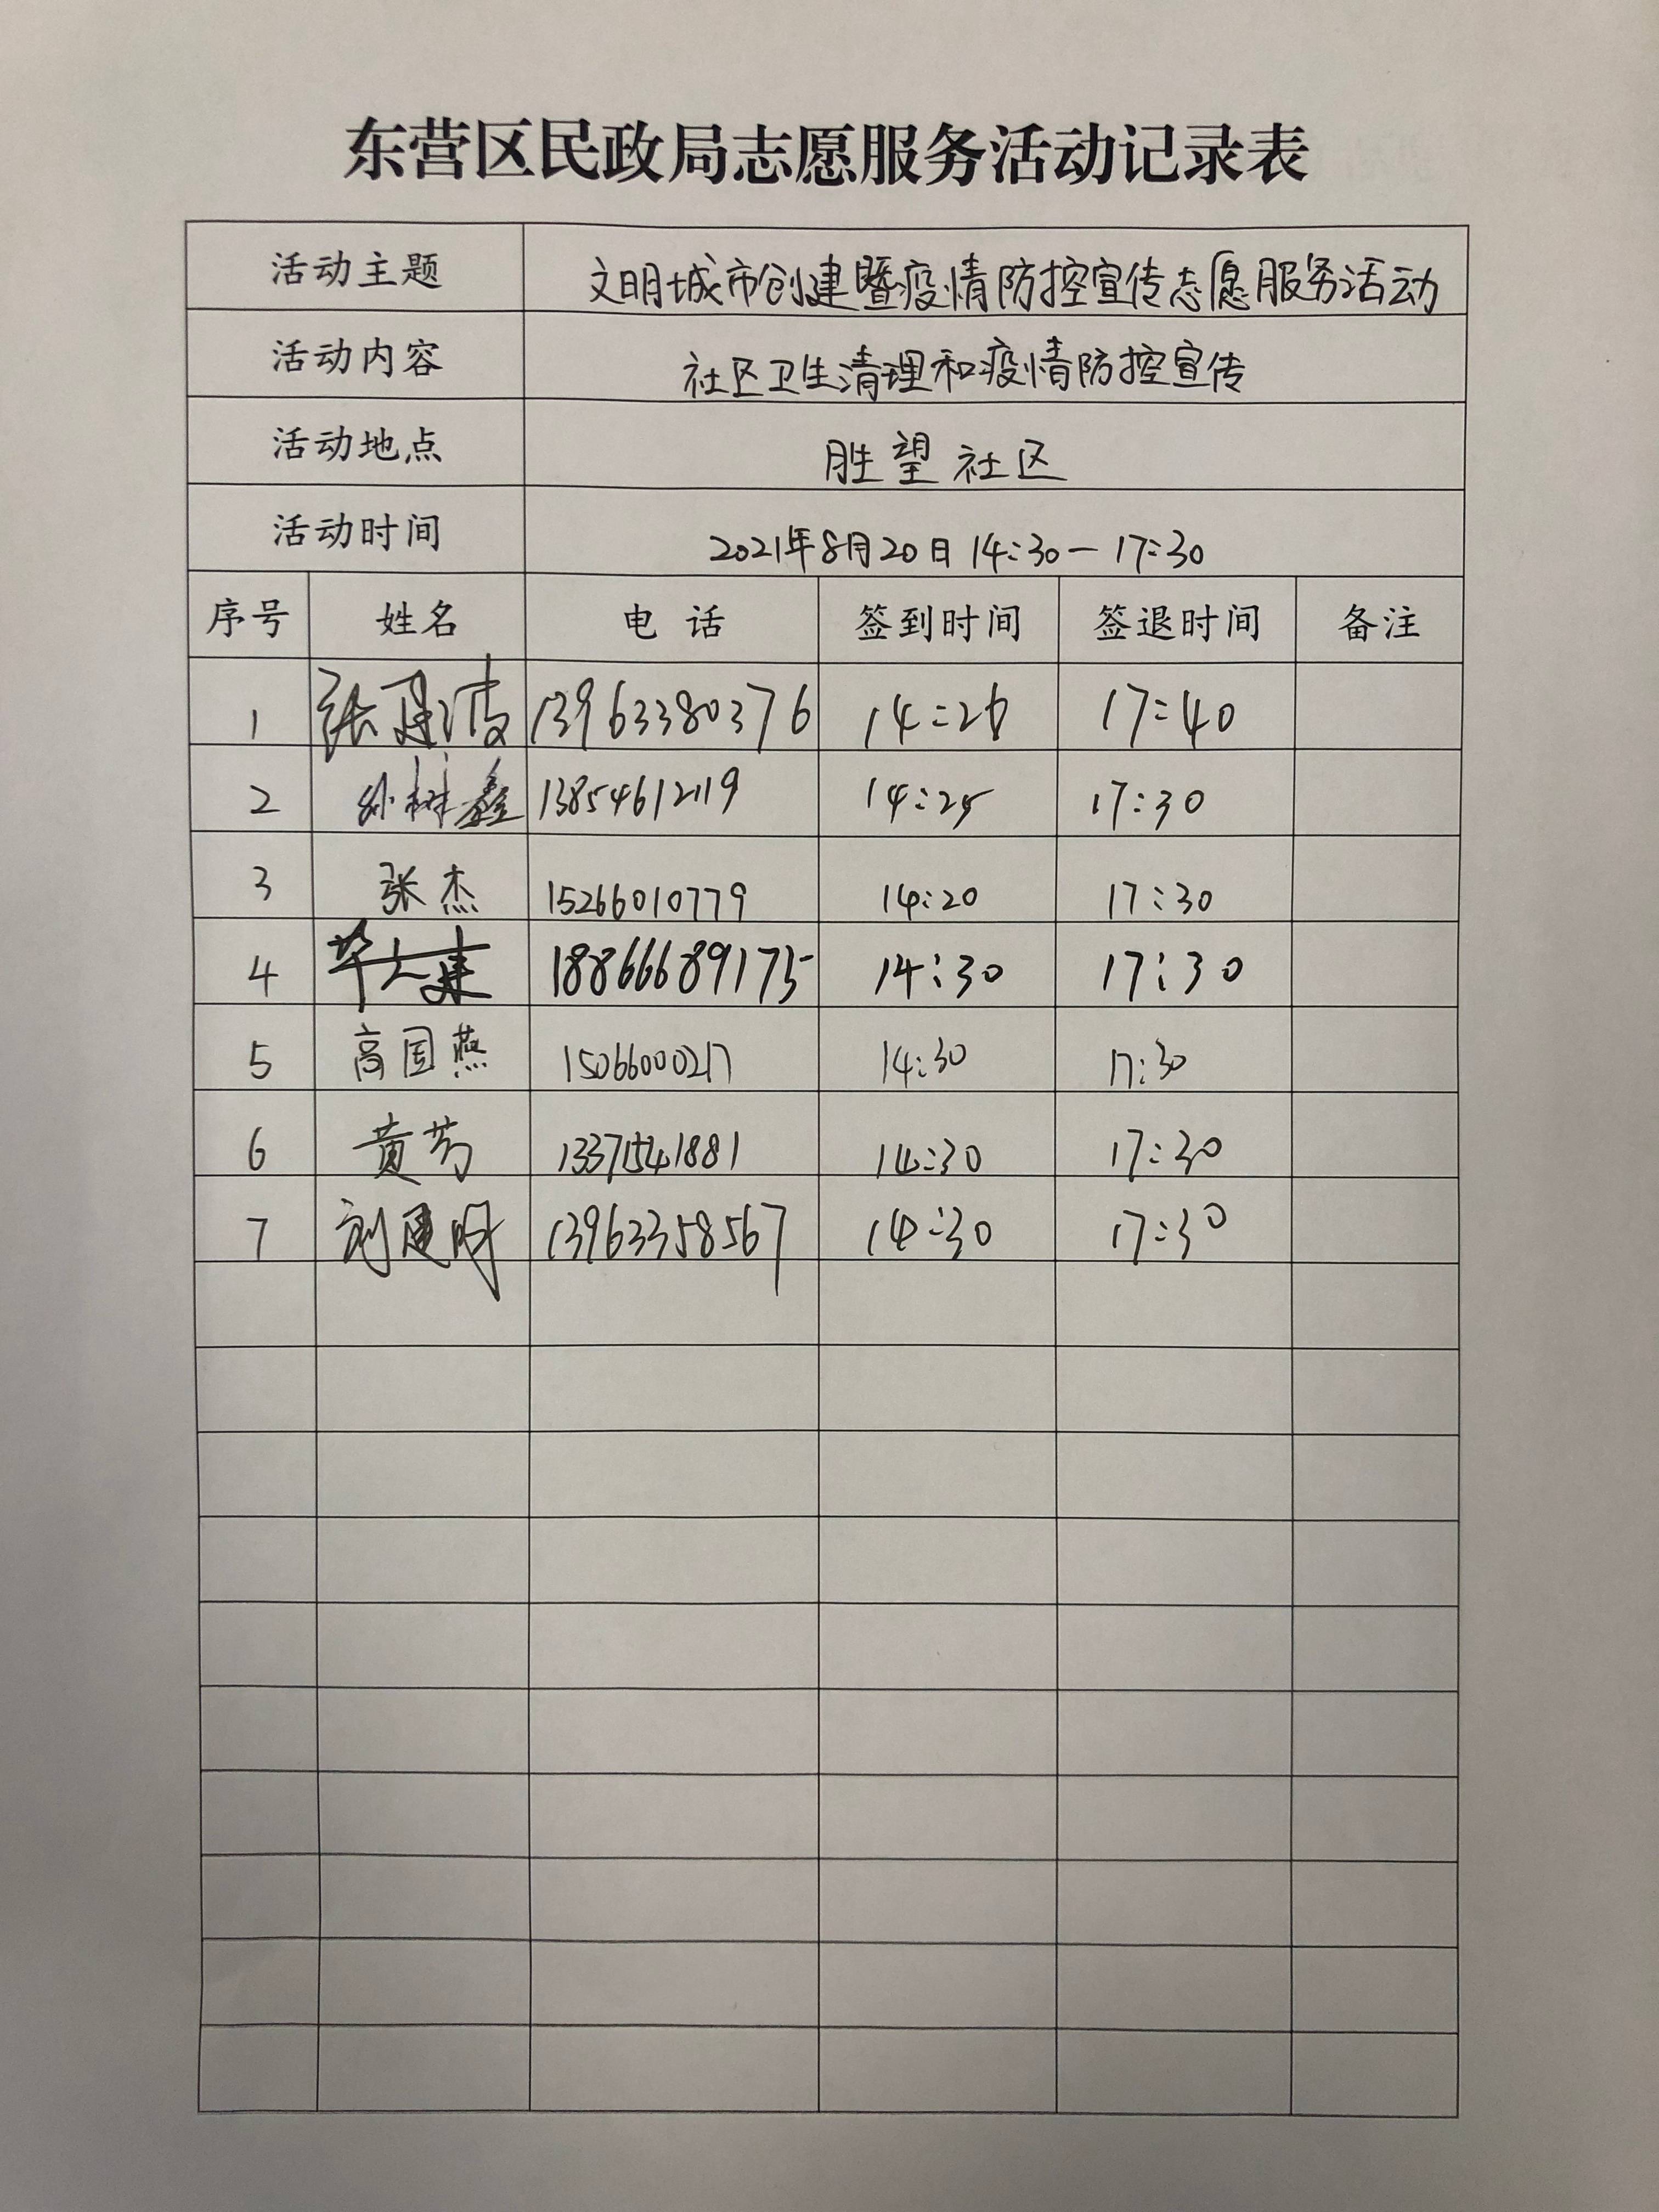 东营区民政局志愿服务活动记录表
活动主题 文明城市创建暨疫情防控宣传志愿服务活动
活动内容 社区卫生清理和疫情防控宣传
活动地点 胜望社区
活动时间 2021年8月20日14:30—17:30
序号 姓名 电话 签到时间 签退时间 备注
1 张建波 13963380376 14:26 17:40
2 孙树鑫 13854612119 14:25 17:30
3 张杰 15266010779 14:20 17:30
4 18866689175 14:30 17:30
5 高国燕 15066000217 14:30 17:30
6 黄芳 13371541881 14:30 17:30
7 刘建明 13963358567 14:30 17:30